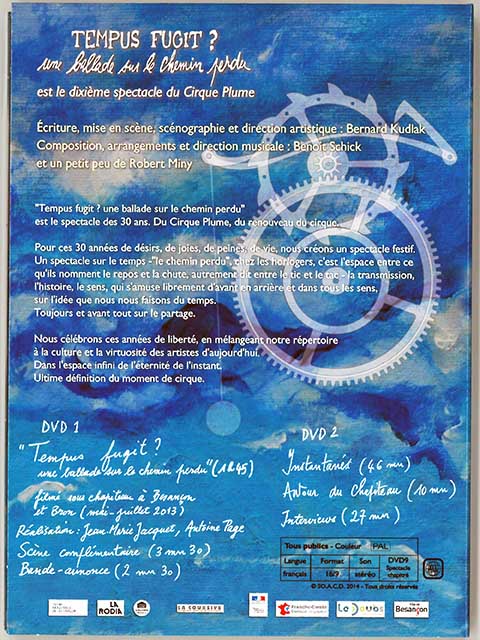 TEMPUS FUGIT ?
une ballade sur le chemin perdu
est le dixième spectacle du Cirque Plume
Écriture, mise en scène, scénographie et direction artistique : Bernard Kudlak
Composition, arrangements et direction musicale : Benoit Schick
et un petit peu de Robert Miny
"Tempus fugit ? une ballade sur le chemin perdu"
est le spectacle des 30 ans. Du Cirque Plume, du renouveau du cirque.
Pour ces 30 années de désirs, de joies, de peines, de vie, nous créons un spectacle festif.
Un spectacle sur le temps -"le chemin perdu", chez les horlogers, c'est l'espace entre ce
qu'ils nomment le repos et la chute, autrement dit entre le tic et le tac - la transmission,
l'histoire, le sens, qui s'amuse librement d'avant en arrière et dans tous les sens,
sur l'idée que nous nous faisons du temps.
Toujours et avant tout sur le partage.
Nous célébrons ces années de liberté, en mélangeant notre répertoire
à la culture et la virtuosité des artistes d'aujourd'hui.
Dans l'espace infini de l'éternité de l'instant.
Ultime définition du moment de cirque.
DVD 1
"Tempus fugit ?
une ballade sur le chemin perdu" (1h45)
filmé sous chapiteau à Besançon
et Bron (mai-juillet 2013)
Réalisation : Jean-Marie Jacquet, Antoine Page
Scène complémentaire (3 mn 30)
Bande-annonce (2 mn 30)
DVD 2
Instantanés (46 mn)
Autour du Chapiteau (10 mn)
Interviews (27 mn)
Tous publics - Couleur PAL
Langue français
Format 16/9
Son stéréo
DVD9 Spectacle chapitré
2014 - Tous droits réservés
LA RODIA
LA COURSIVE
Franche-Comté
Le Doubs
Besançon